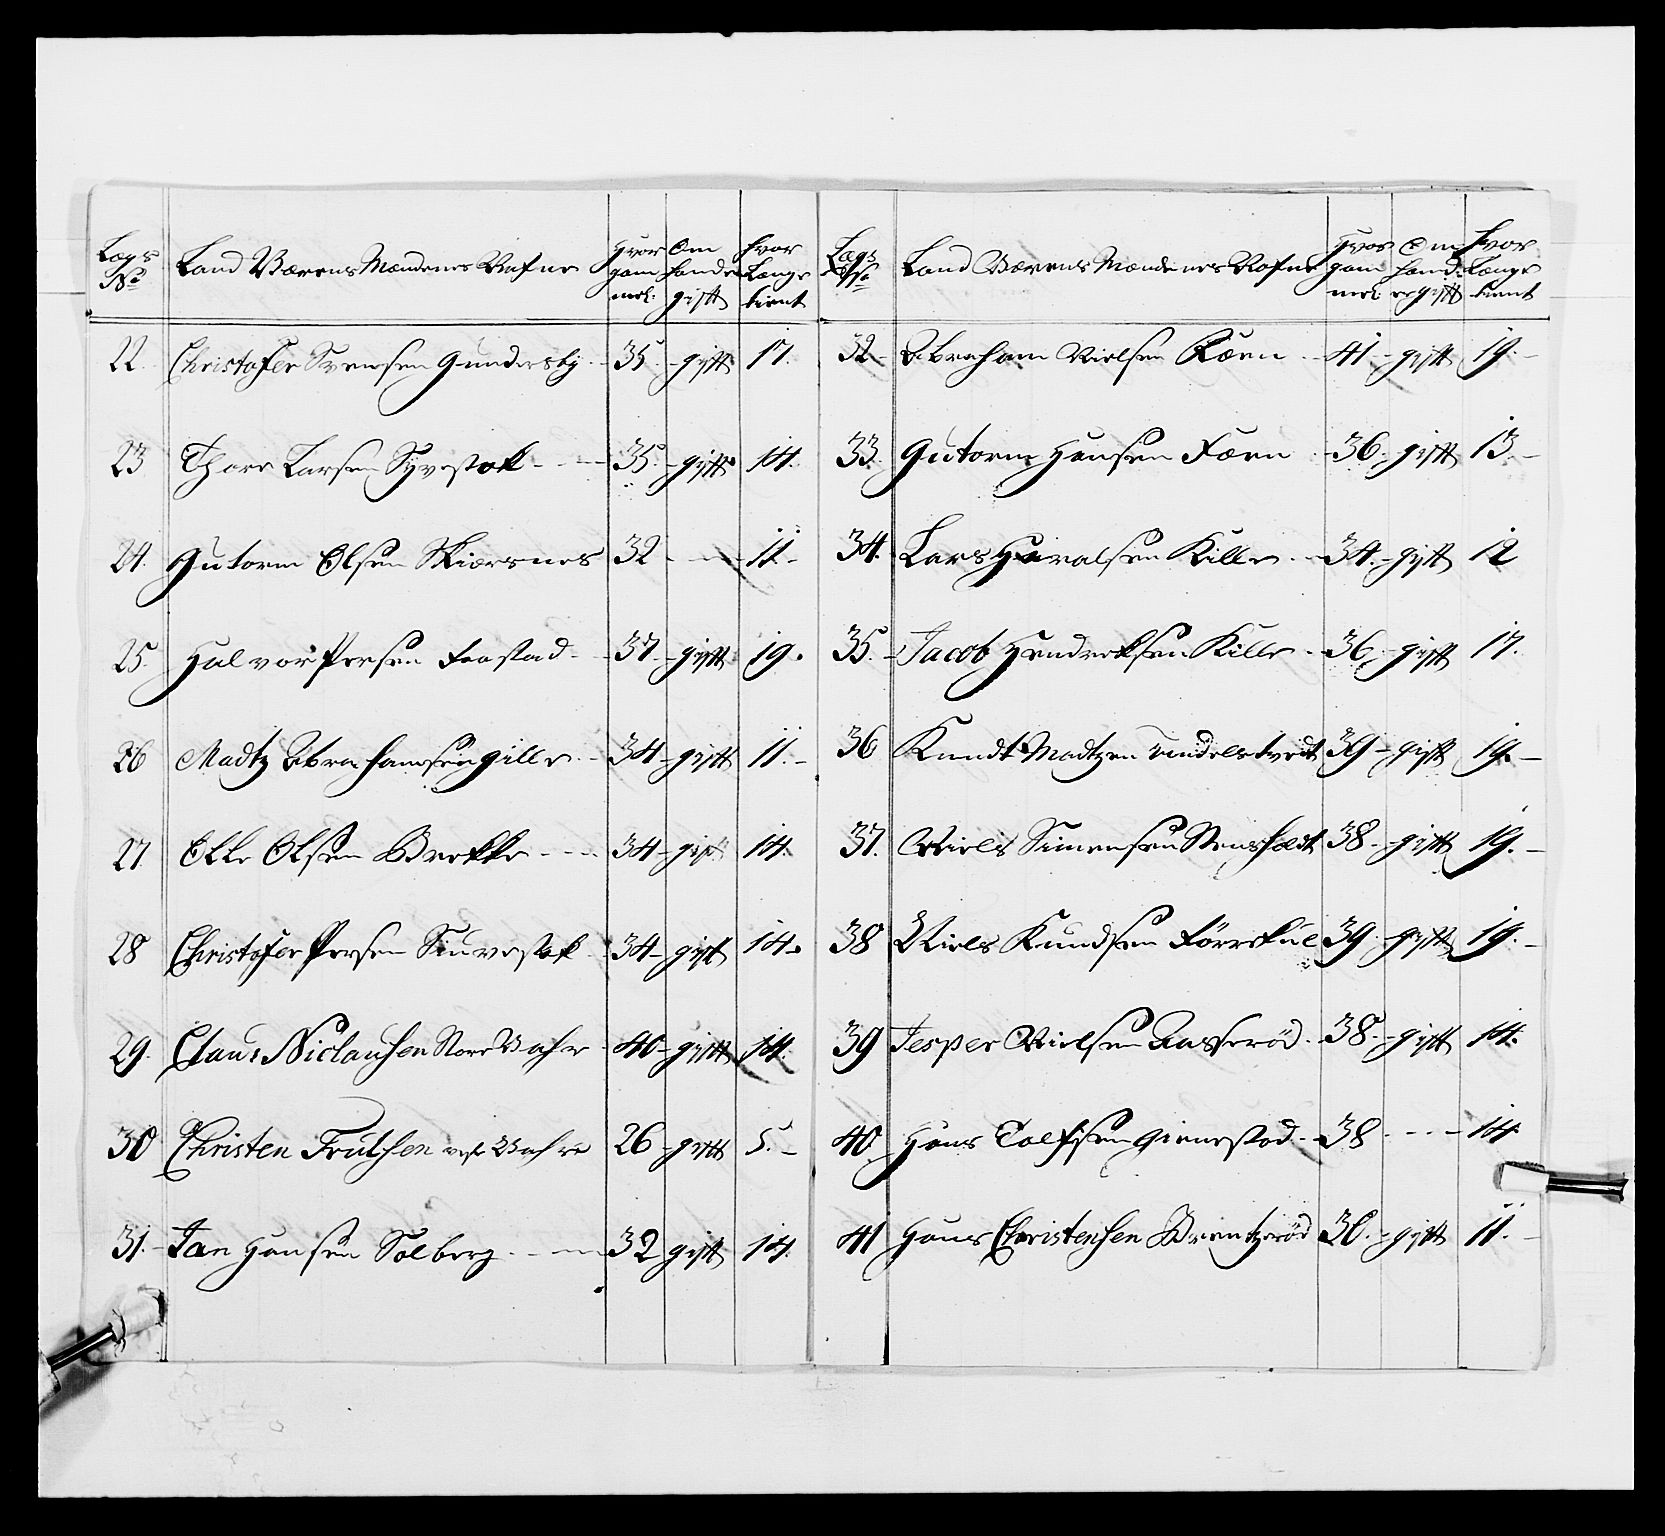 Lægs No
Land Værens Mændenes Nafne
Hvor gam mel.
Om hand er gift
Hvor Længe tient
22. Christofer Svensen Gundersby - 35. - gift 17.
23 Thore Larsen Syvestok - - - 35. - gift 14.
24. Gutorm Olsen Skiørsnes 32 - - 11 -
25. Halvor Persen Frostad - 37 - gift 19.
26 Madtz Abrahamsen Gille - 34 - gift 11. -
27. Olle Olsen Brekke - - - 34 - gift 14.
28 Christofer Persen Siuvestok 34 - gift 14.
29. Claus Niclausen Nore 40 - gift 14.
30 Christen Fruthsen 26 - gift 5. -
31. - Jan Hansen Solberg - - - 32 gift 14.
Lægs No
Land Værens Mændenes Nafne
Hvor gam mel
Om hand er gift
Hvor Længe tient
32 - Abraham Nielsen Kiærn - 41 - gift 19. -
33. Gutorm Hansen Færn - 36. gift 13. -
34. Lars Havalsen Kille - 34. - gift 12
35. - Jacob Hendreksen Kille - 36 - gift 17.
36 Knudt Madtzen Tindelstvedt 39 - gift 19. -
37. Niels Simensen Stensholt 38 - gift 19. -
38 Niels Knudsen Førrekul 39. gift 19. -
39 Jesper Nielsen Rasserød - 38. - gift 14.
40. Hans Tolfsen Gienestad - 38 - - - 14.
41 Hans Christensen Brentzerød 30. - gift 11. -